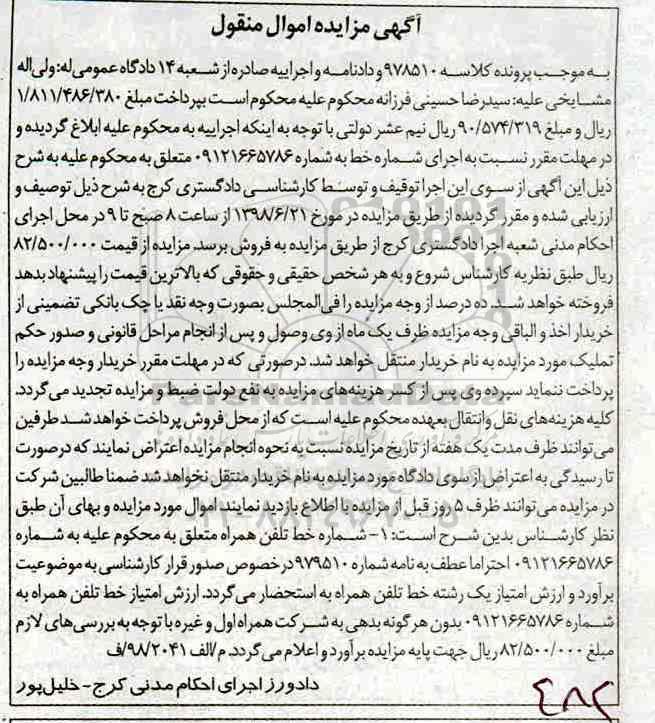 آگهی مزایده اموال منقول
به موجب پرونده کلاسه ۹۷۸۵۱۰ و دادنامه و اجراییه صادره از شعبه ۱۴ دادگاه عمومی له: ولی اله
مشایخی علیه: سیدرضا حسینی فرزانه محکوم علیه محکوم است بپرداخت مبلغ ۱/۸۱۱/۴۸۶/۳۸۰
ریال و مبلغ ۹۰/۵۷۴/۳۱۹ ریال نیم عشر دولتی با توجه به اینکه اجراییه به محکوم علیه ابلاغ گردیده و
در مهلت مقرر نسبت به اجرای شماره خط به شماره ۰۹۱۲۱۶۶۵۷۸۶ متعلق به محکوم علیه به شرح
ذیل این آگهی از سوی این اجرا توقیف و توسط کارشناسی دادگستری کرج به شرح ذیل توصیف و
ارزیابی شده و مقرر گردیده از طریق مزایده در مورخ ۱۳۹۸/۶/۲۱ از ساعت ۸ صبح تا ۹ در محل اجرای
احکام مدنی شعبه اجرا دادگستری کرج از طریق مزایده به فروش برسد. مزایده از قیمت ۸۲/۵۰۰/۰۰۰
ریال طبق نظریه کارشناس شروع و به هر شخص حقیقی و حقوقی که بالاترین قیمت را پیشنهاد بدهد
فروخته خواهد شد. ده درصد از وجه مزایده را فی المجلس بصورت وجه نقد یا چک بانکی تضمینی از
خریدار اخذ و الباقی وجه مزایده ظرف یک ماه از وی وصول و پس از انجام مراحل قانونی و صدور حکم
تملیک مورد مزایده به نام خریدار منتقل خواهد شد. درصورتی که در مهلت مقرر خریدار وجه مزایده را
پرداخت ننماید سپرده وی پس از کسر هزینه‌های مزایده به نفع دولت ضبط و مزایده تجدید می گردد.
کلیه هزینه‌های نقل وانتقال بعهده محکوم علیه است که از محل فروش پرداخت خواهد شد طرفین
می توانند ظرف مدت یک هفته از تاریخ مزایده نسبت به نحوه انجام مزایده اعتراض نمایند که درصورت
تا رسیدگی به اعتراض از سوی دادگاه مورد مزایده به نام خریدار منتقل نخواهد شد ضمنا طالبین شرکت
در مزایده می توانند ظرف ۵ روز قبل از مزایده با اطلاع بازدید نمایند. اموال مورد مزایده و بهای آن طبق
نظر کارشناس بدین شرح است: ۱- شماره خط تلفن همراه متعلق به محکوم علیه به شماره
۰۹۱۲۱۶۶۵۷۸۶ احتراما عطف به نامه شماره ۹۷۹۵۱۰ درخصوص صدور قرار کارشناسی به موضوعیت
برآورد و ارزش امتیاز یک رشته خط تلفن همراه به استحضار می گردد. ارزش امتیاز خط تلفن همراه به
شماره ۰۹۱۲۱۶۶۵۷۸۶ بدون هرگونه بدهی به شرکت همراه اول و غیره با توجه به بررسی های لازم
مبلغ ۸۲/۵۰۰/۰۰۰ ریال جهت پایه مزایده برآورد و اعلام می گردد. م/الف ۹۸/۲۰۴۱/ف
دادورز اجرای احکام مدنی کرج - خلیل پور